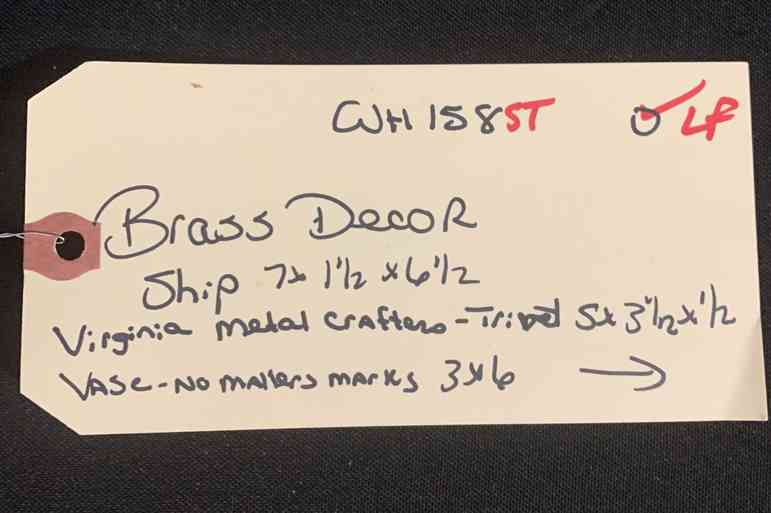 WH158ST O✓ LP
Brass Decor
Ship 7x 1 1/2 x 6 1/2
Virginia Metal Crafters - Trivet 5x 3 1/2 x 1/2
Vase - No Makers Marks 3x6 →